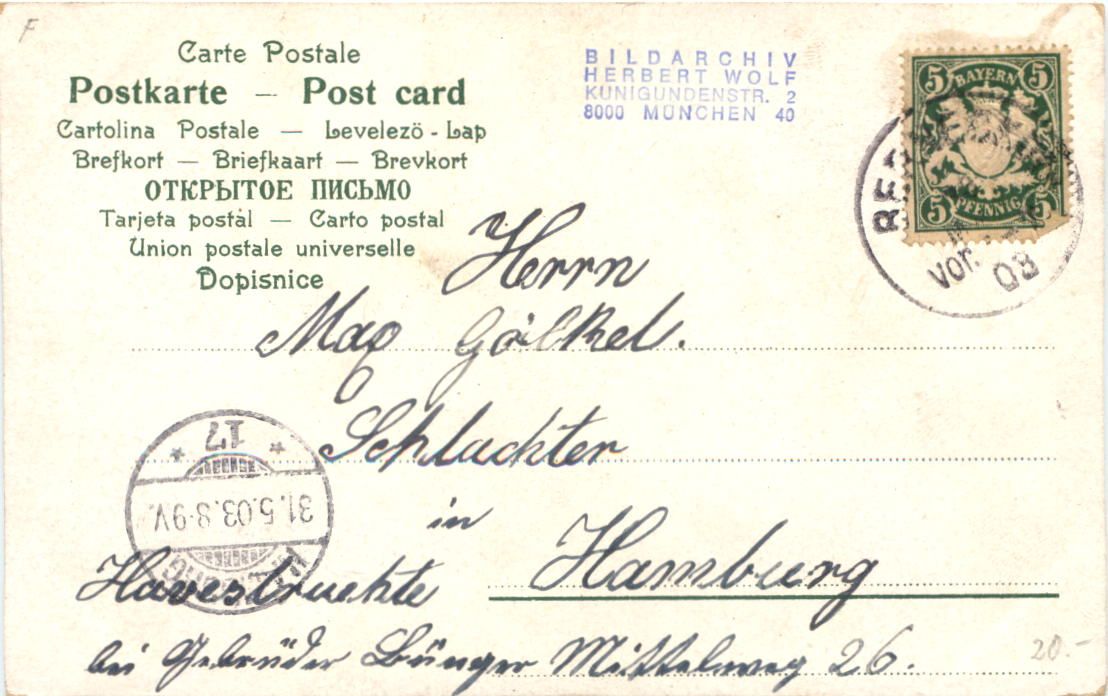 F
Carte Postale
Postkarte — Post card
Cartolina Postale — Levelezö - Lap
Brefkort — Briefkaart — Brevkort
ОТКРЫТОЕ ПИСЬМО
Tarjeta postàl — Carto postal
Union postale universelle
Dopisnice
BILDARCHIV
HERBERT WOLF
KUNIGUNDENSTR. 2
8000 MÜNCHEN 40
5 BAYERN 5
5 PFENNIG 5
Vor.
03
Herrn
Max Gölkel.
Schlachter
in
Hamburg
bei Gebrüder Bünger Mittelweg 26.
17
31.5.03.8-9V.
HAMBURG
20.-